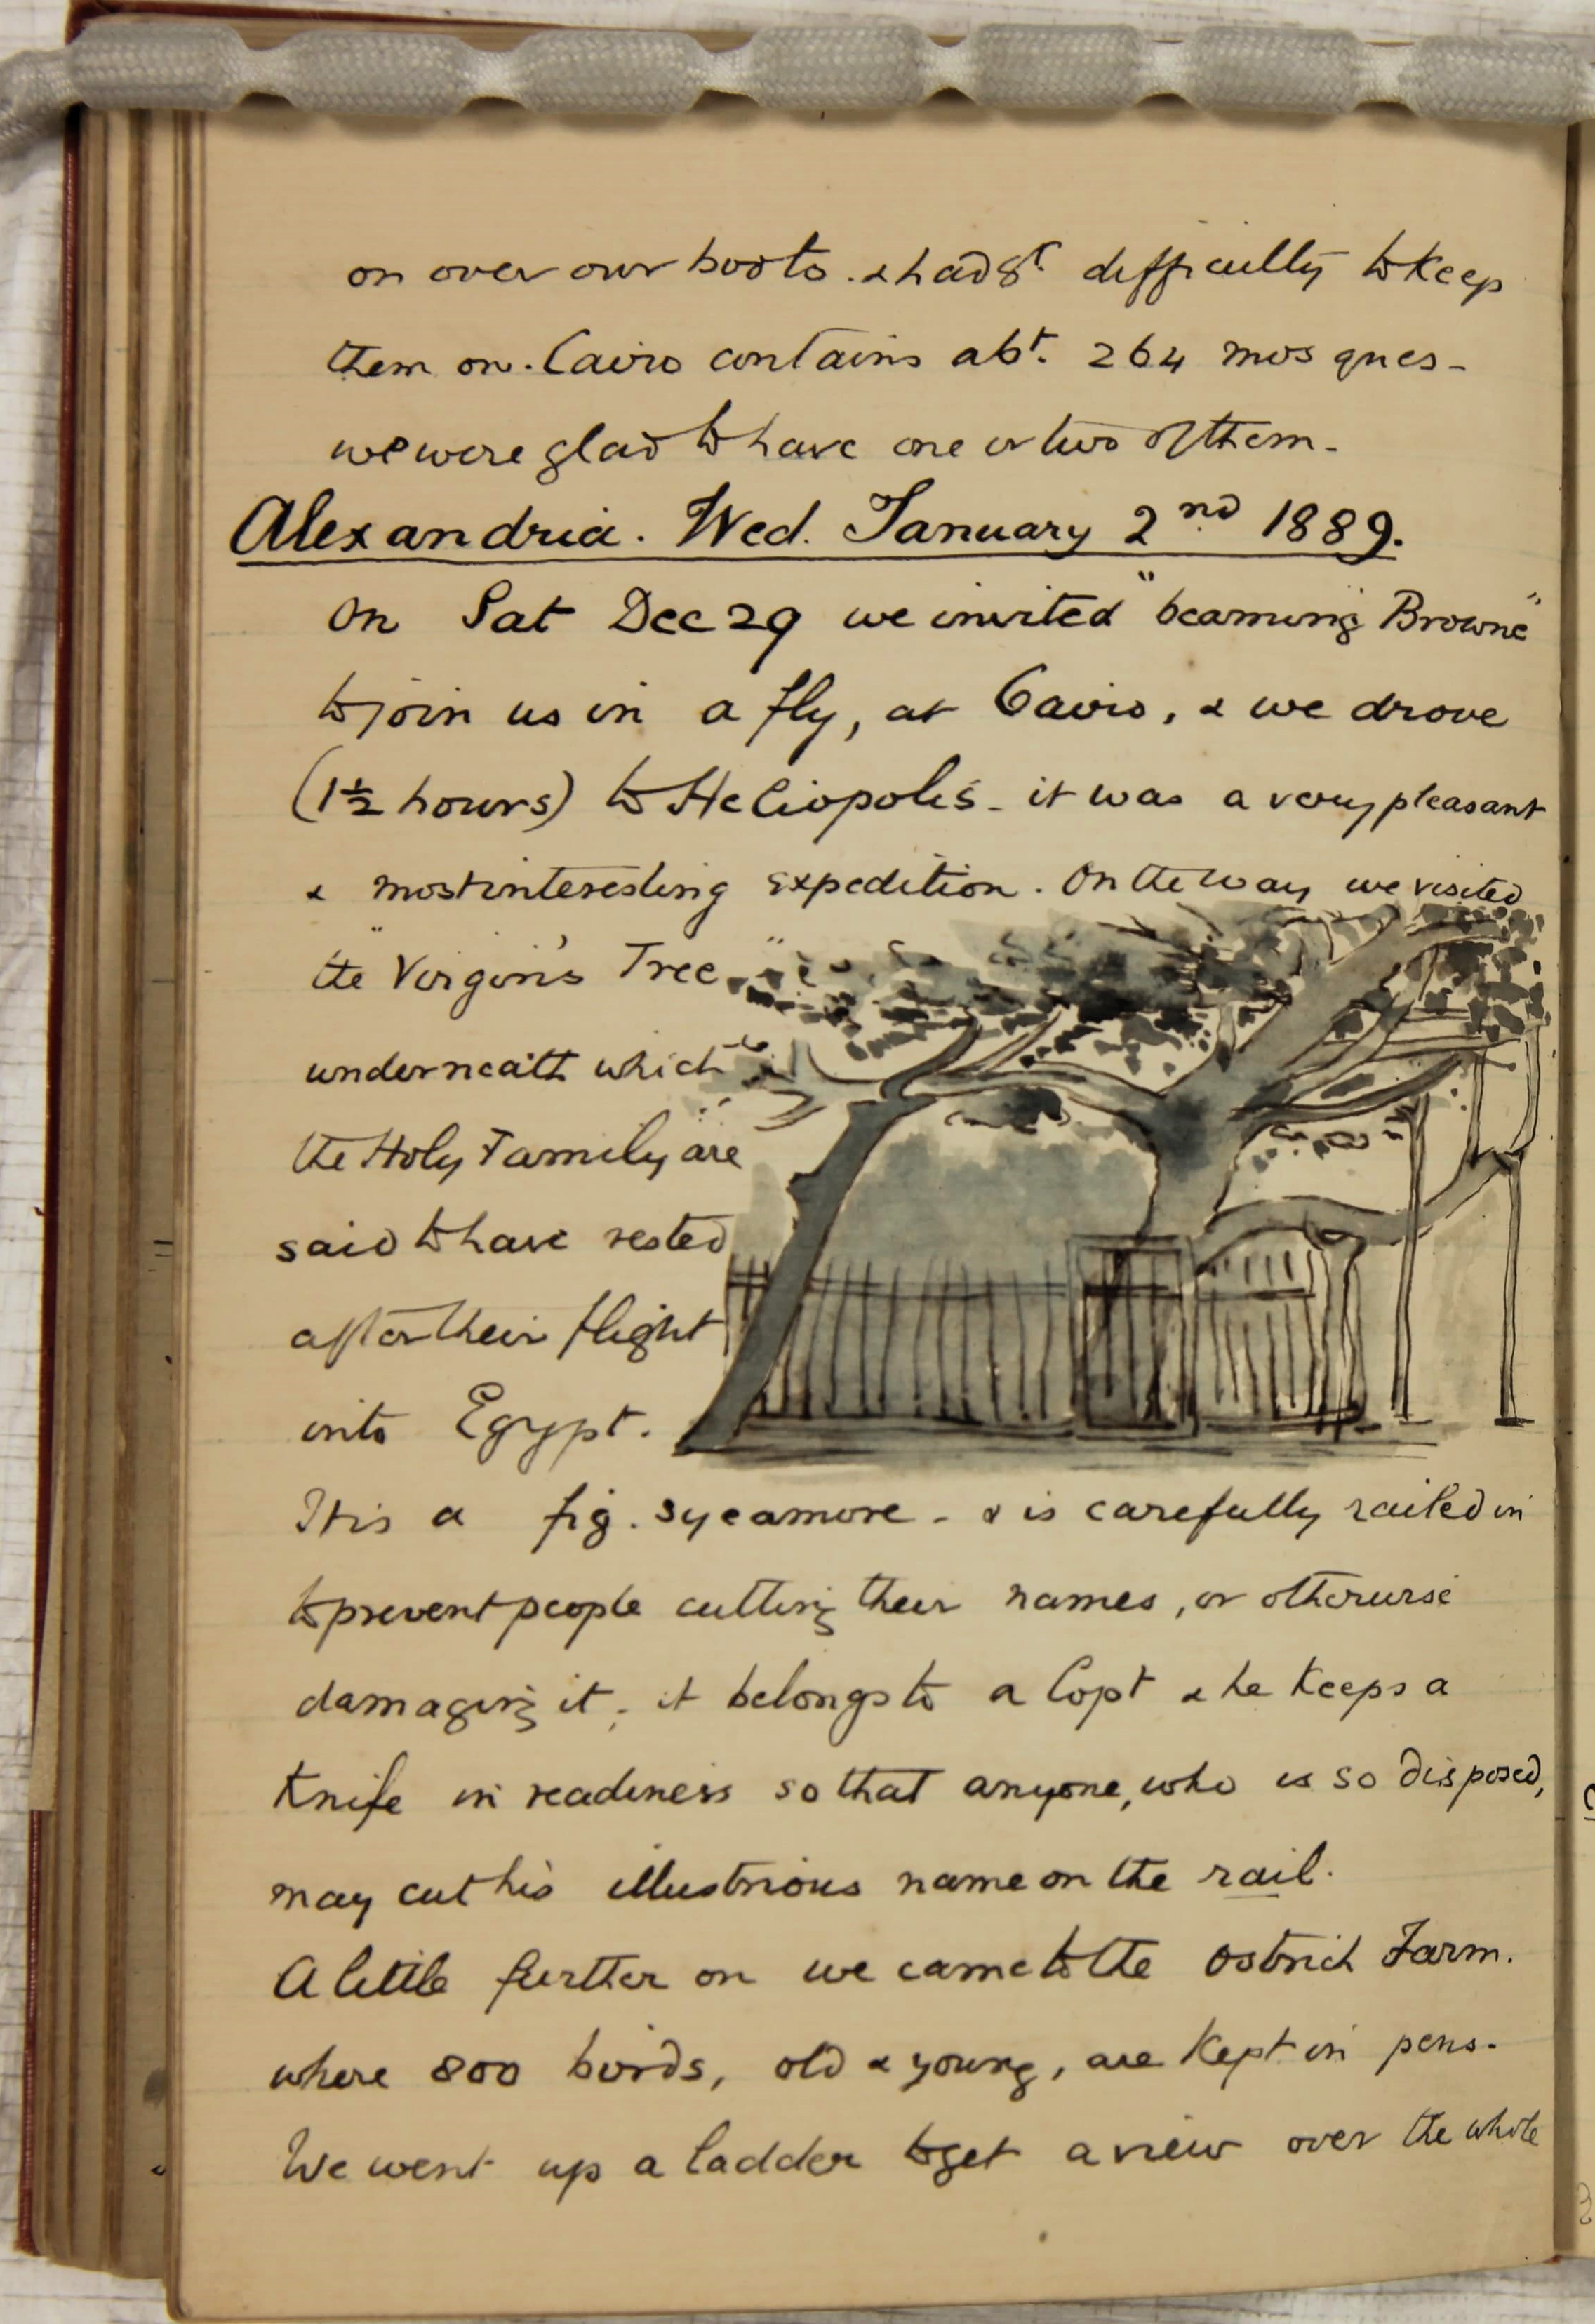 on over our boots. & had gt. difficulty to keep
them on. Cairo contains abt. 264 mosques -
we were glad to have one or two of them -
Alexandria. Wed. January 2nd 1889.
On Sat Dec 29 we invited "beaming Browne"
to join us in a fly, at Cairo, & we drove
(1½ hours) to Heliopolis - it was a very pleasant
& most interesting expedition. On the way we visited
the "Virgin's Tree"
underneath which
the Holy Family are
said to have rested
after their flight
into Egypt.
It is a fig. sycamore - & is carefully railed in
to prevent people cutting their names, or otherwise
damaging it; it belongs to a Copt & he keeps a
knife in readiness so that anyone, who is so disposed,
may cut his illustrious name on the rail.
A little further on we came to the Ostrich Farm.
where 800 birds, old & young, are kept in pens.
We went up a ladder to get a view over the whole